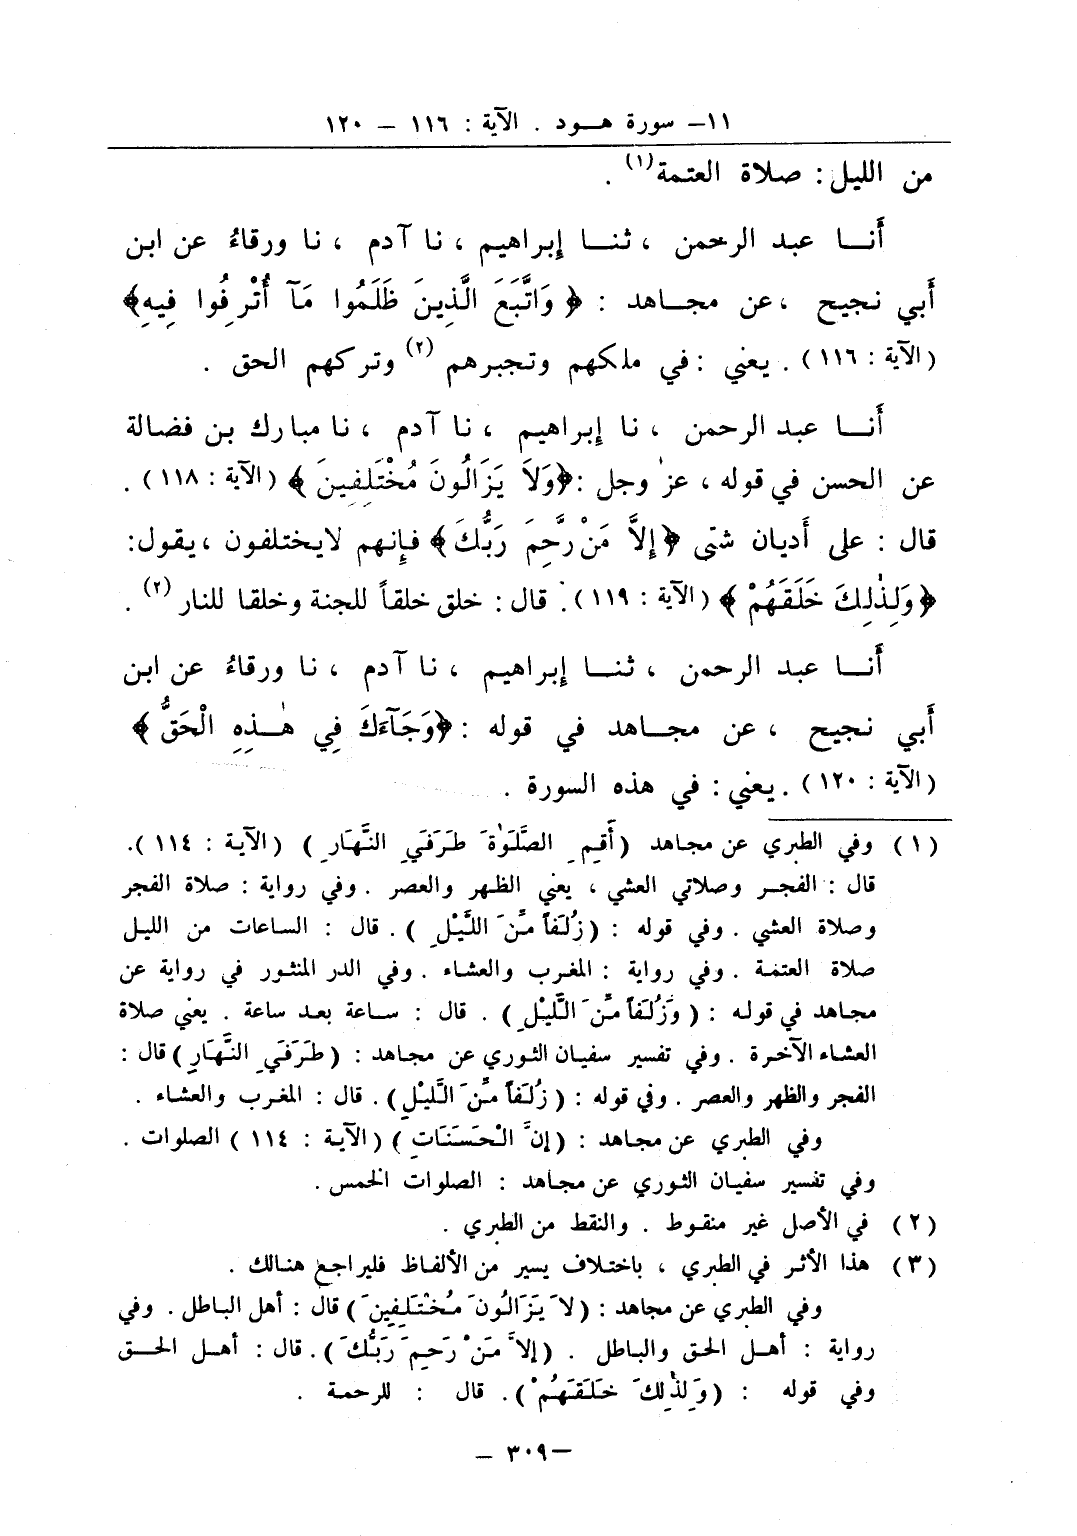 ١١– سورة هـود . الآية : ١١٦ – ١٢٠
من الليل : صلاة العتمة(١) .
أَنـا عبد الرحمن ، ثنـا إبراهيم ، نا آدم ، نا ورقاءُ عن ابن
أَبي نجيح ، عن مجـاهد : ﴿ وَاتَّبَعَ الَّذِينَ ظَلَمُوا مَآ أُتْرِفُوا فِيهِ﴾
(الآية : ١١٦) . يعني : في ملكهم وتجبرهم (٢) وتركهم الحق .
أَنـا عبد الرحمن ، نا إبراهيم ، نا آدم ، نا مبارك بن فضالة
عن الحسن في قوله ، عز وجل : ﴿وَلاَ يَزَالُونَ مُخْتَلِفِينَ ﴾ (الآية : ١١٨) .
قال : على أَديان شتى ﴿إِلاَّ مَنْ رَّحِمَ رَبُّكَ﴾ فإنهم لايختلفون ، يقول:
﴿وَلِذٰلِكَ خَلَقَهُمْ ﴾ (الآية : ١١٩). قال : خلق خلقاً للجنة وخلقا للنار (٢) .
أَنـا عبد الرحمن ، ثنـا إبراهيم ، نا آدم ، نا ورقاءُ عن ابن
أَبي نجيح ، عن مجـاهد في قوله : ﴿وَجَآءَكَ فِي هٰـذِهِ الْحَقُّ﴾
(الآية : ١٢٠) . يعني : في هذه السورة .
(١) وفي الطبري عن مجاهد (أَقِمِ الصَّلَوٰةَ طَرَفَيِ النَّهَارِ ) (الآية : ١١٤).
قال : الفجـر وصلاتي العشي ، يعني الظهر والعصر . وفي رواية : صلاة الفجر
وصلاة العشي . وفي قوله : (زُلَفاً مِّنَ اللَّيْلِ ) . قال : الساعات من الليل
صلاة العتمة . وفي رواية : المغرب والعشاء . وفي الدر المنثور في رواية عن
مجاهد في قوله : ( وَزُلَفاً مِّنَ الَّليْلِ ) . قال : سـاعة بعـد ساعة . يعني صلاة
العشاء الآخرة . وفي تفسير سفيان الثوري عن مجاهد : (طَرَفَيِ النَّهَارِ ) قال :
الفجر والظهر والعصر . وفي قوله : (زُلَفاً مِّنَ الَّليْلِ) . قال : المغرب والعشاء .
وفي الطبري عن مجـاهد : (إِنَّ الْـحَسَنَاتِ ) (الآيـة : ١١٤ ) الصلوات .
وفي تفسير سفيان الثوري عن مجاهد : الصلوات الخمس .
(٢) في الأصل غير منقوط . والنقط من الطبري .
(٣) هذا الأثـر في الطبري ، باختلاف يسير من الألفاظ فليراجع هنالك .
وفي الطبري عن مجاهد : (لاَ يَزَالُونَ مُخْتَلِفِينَ ) قال : أهل الباطل . وفي
رواية : أهـل الحق والباطل . (إِلاَّ مَنْ رَحِمَ رَبُّكَ ) . قال : أهـل الحـق
وفي قوله : (وَلِذٰلِكَ خَلَقَهُمْ ) . قال : للرحمة .
–٣٠٩ –